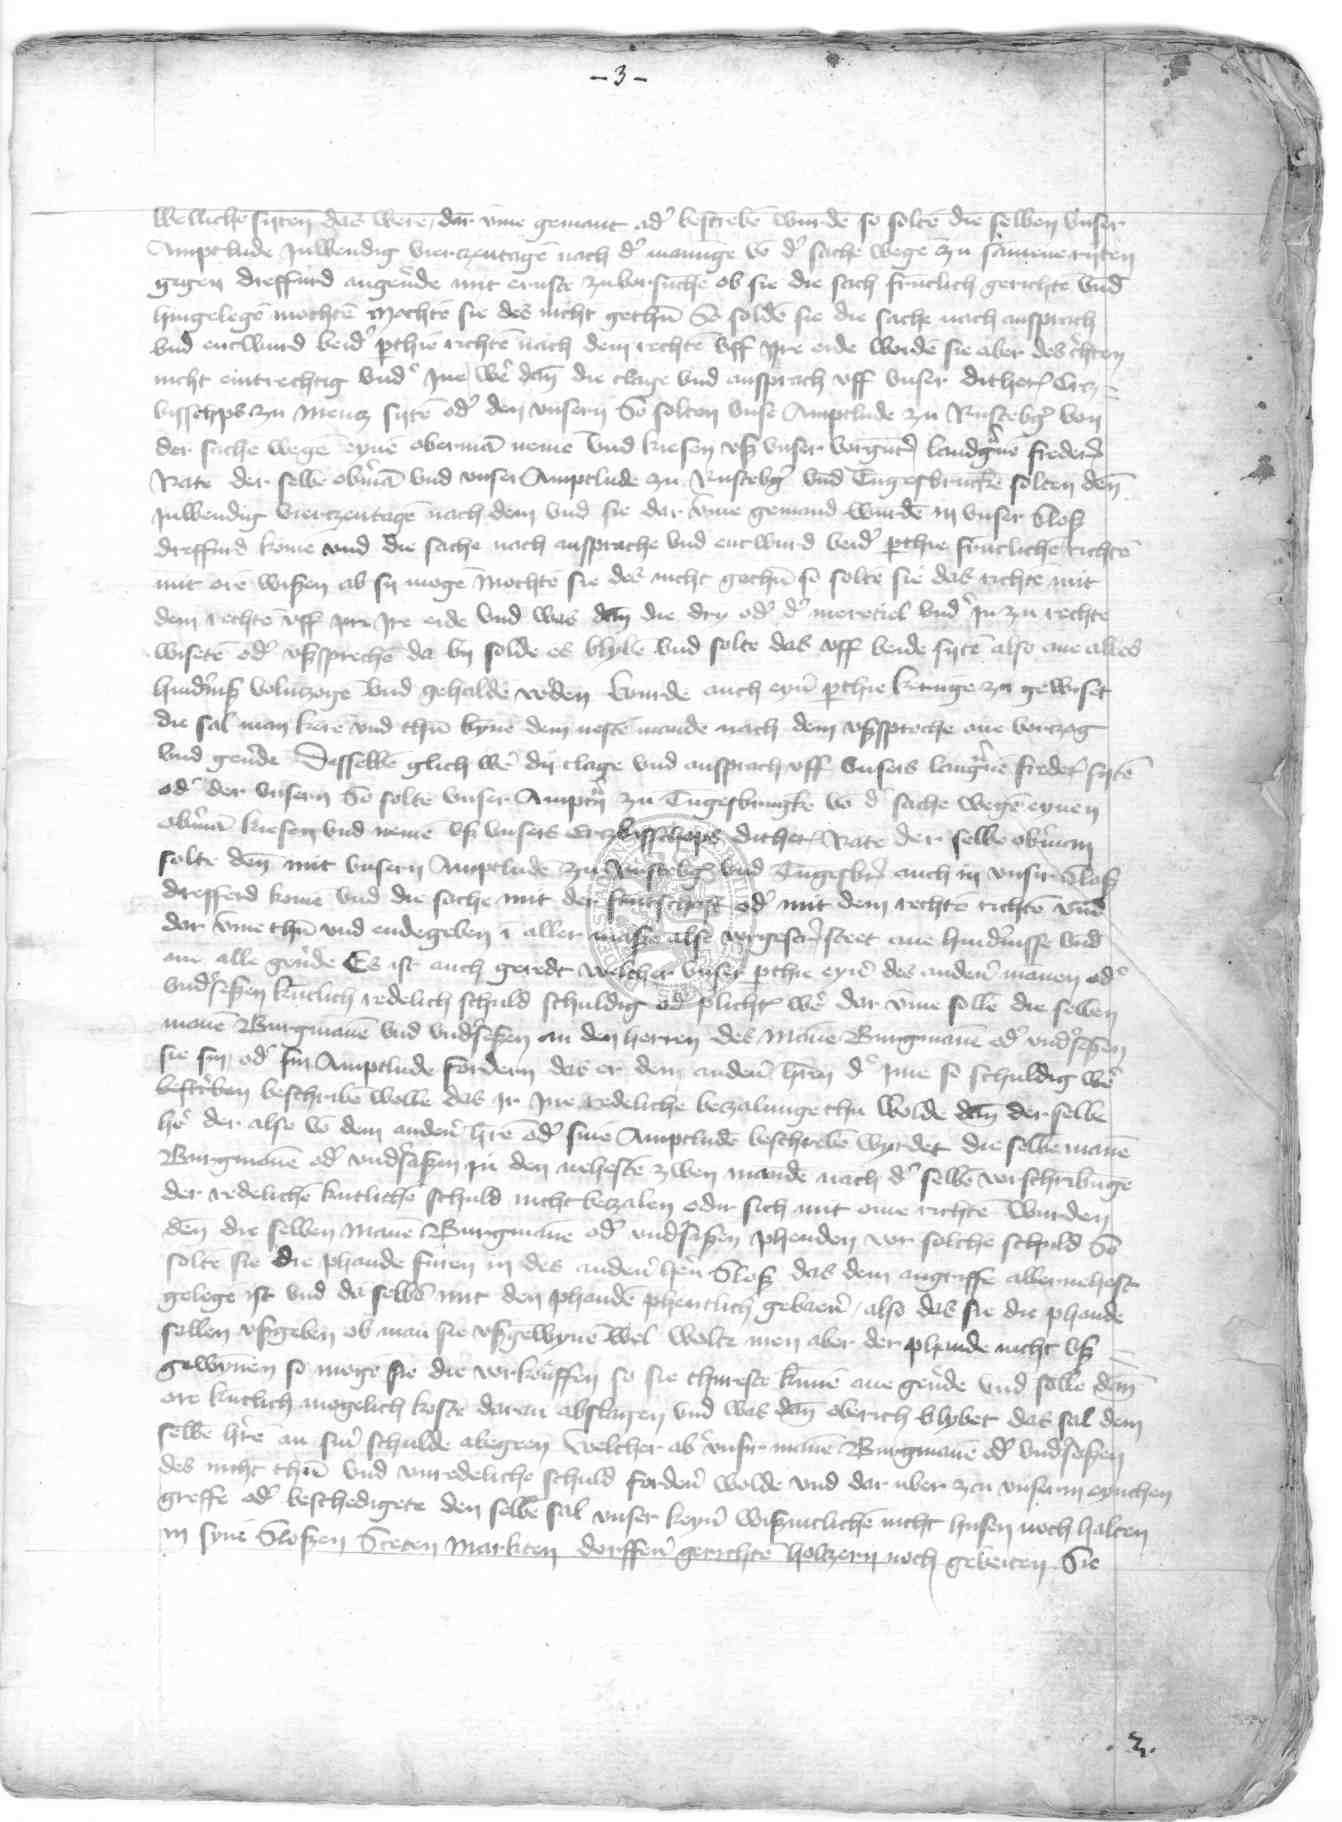 - 3 -
wellichē sijten das were, dar v̄me gemant ad' bescrebē wurdē so soltē die selben vnser
Amptlude Inwendig vierczentagē nach d' manūge vō d' sache wegē zu samene riten
gegen Dreffurd angeu'de mit ernste zuvorsuchē ob sie die sach fruntlich gerichtē vnd
hingelegē mochtē Mochtē sie des nicht gethū So soldē sie die sache nach ansprach
vnd entwurd beid' pthie richtē nach dem rechtē vff Ire eide wordē sie aber des r'chten
nicht eintrechtig vnd' Ine we' dan die clage vnd ansprach vff vnser Dither' Ercz-
bisschops zu Mencz sijtē od' den vnsern So solten vnse Amptlude zu Rustebg' von
der sache wegē eynē obermā neme vnd kiesen vß vnser vorgnt' landgue' Freder'
Rate der selbe ob'mā vnd vnser Amptlude zu Rustebg' vnd Tungesbruckē solten den
Inwendig vierczentagē nach dem vnd sie dar v̄me gemand wurdē in vnser Sloß
Dreffurd komē vnd die sache nach ansprache vnd entwurd beid' pthie fruntlichē richtē
mit orē wißen ab sy mogē Mochtē sie des nicht gethū so soltē sie das richtē mit
dem rechtē vff Ire eide vnd was dan die dry od' d' mereteil vnd' In zu rechte
wisetē od' vßsprechē da by solde es blybē vnd solte das vff beide sijtē also ane alles
hind'niß volnzogē vnd gehaldē w'den wurde auch eyn' pthie kunge zu gewiset
die sal man kere vnd thū bynē dem nestē mande nach dem vßsproche ane vorczog
vnd geu'de Desselbē glich we' dy clage vnd ansprach vff vnsers langue' Freder' sijtē
od' der vnsern So solte vnser Amptm' zu Tungesbrugke vō d' sache wegē eynen
ob'mā kiesen vnd nemē vß vnsers Erczbisschops Dither' Rate der selbe ob'man
solte den mit vnsern Amptludē zu Rustebg' vnd Tungesbr' auch in vnser Sloß
Drefferd komē vnd die sache mit der fruntschaft od' mit dem rechtē richtē vnd
dar v̄me thū vnd endegeben ī aller maße also vorgescr' steet ane hind'nisse vnd
ane alle geu'de Es ist auch geredt welcher vnser pthie eyn' des anden' manen od'
vnd'seßen kuntlich redelich schuld schuldig od' plicht' we' dar v̄me sollē die selben
manē Burgmanē vnd vnd'seßen an den herren des Manē Burgmanē od' vnd'seßen
sie sin od' sin Amptlude fordern das er dem anden' h'ren d' Ime so schuldig we'
beschribē wolle das Ir Ine redeliche beczalunge thu wolde dan der selbe
he' der also vō dem anden' h'rē od' sinē Amptludē beschrebē wurdet die selbe manē
Burgmanē od' vnd'saßin in den nehestē zwen mande nach d' selbē vorschribunge
der redelichē kutlichē schuld nicht beczalen odir sich mit one richtē wurden
den die selben Manē Burgmanē od' vnd'saßen phenden vor solche schuld So
soltē sie die phande furen in des anden' hern Sloß das dem angriffe allernehest
gelegē ist vnd da selbs mit den phandē phentlich gebarn' also das sie die phande
sollen vßgeben ob man sie vßgewynē wel wolte men aber der phande nicht vß
gewinnen so mogē sie die vorkouffen so sie thureste kunnē ane geu'de vnd solle dan
ore kutlich mogelich koste daran abslagen vnd was dan oberich blybet das sal dem
selbē h'rē an sin' schulde abegeen welcher ab' vnser manē Burgmanē od' vnd'saßen
des nicht thū vnd vnredeliche schuld fordern' wolde vnd dar vber zcu vnserm eynchen
greffe od' beschedigete den selbē sal vnser keyn' wißintlichē nicht husen noch halten
in synē Sloßen Steten Markten dorffern' gerichtē holczern noch gebeiten Sie
. 3.